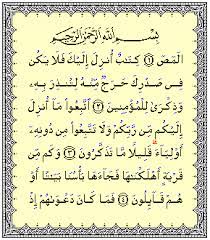 بِسْمِ اللَّهِ الرَّحْمَٰنِ الرَّحِيمِ
الٓمٓصٓ ١ كِتَٰبٌ أُنزِلَ إِلَيْكَ فَلَا يَكُن
فِى صَدْرِكَ حَرَجٌ مِّنْهُ لِتُنذِرَ بِهِۦ
وَذِكْرَىٰ لِلْمُؤْمِنِينَ ٢ ٱتَّبِعُوا۟ مَآ أُنزِلَ
إِلَيْكُم مِّن رَّبِّكُمْ وَلَا تَتَّبِعُوا۟ مِن دُونِهِۦٓ
أَوْلِيَآءَ ۗ قَلِيلًا مَّا تَذَكَّرُونَ ٣ وَكَم مِّن
قَرْيَةٍ أَهْلَكْنَٰهَا فَجَآءَهَا بَأْسُنَا بَيَٰتًا أَوْ
هُمْ قَآئِلُونَ ٤ فَمَا كَانَ دَعْوَىٰهُمْ إِذْ